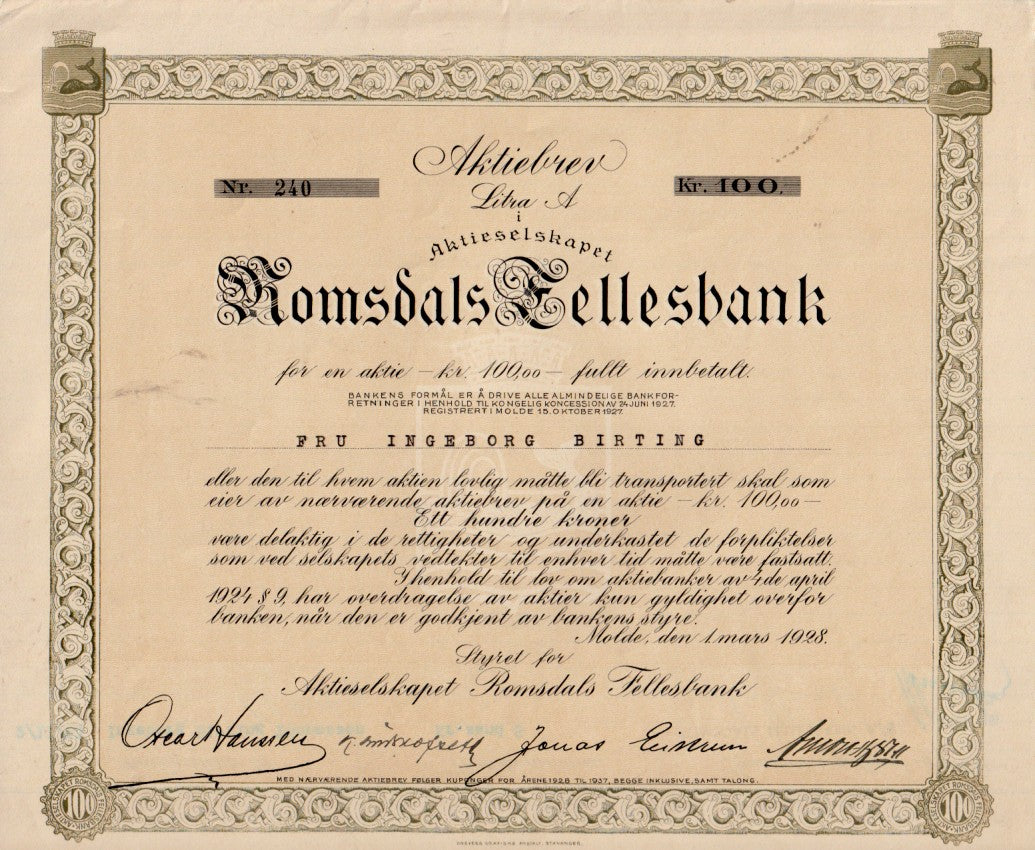 Aktiebrev
Nr. 240
Kr. 100.
Litra A
i
Aktieselskapet
Romsdals Fellesbank
for en aktie — kr. 100,00 — fullt innbetalt.
BANKENS FORMÅL ER Å DRIVE ALLE ALMINDELIGE BANKFOR-
RETNINGER I HENHOLD TIL KONGELIG KONCESSION AV 24 JUNI 1927.
REGISTRERT I MOLDE 15. OKTOBER 1927.
FRU INGEBORG BIRTING
eller den til hvem aktien lovlig måtte bli transportert skal som
eier av nærværende aktiebrev på en aktie — kr. 100,00 —
Ett hundre kroner
være delaktig i de rettigheter og underkastet de forpliktelser
som ved selskapets vedtekter til enhver tid måtte være fastsatt.
I henhold til lov om aktiebanker av 4 de april
1924 § 9, har overdragelse av aktier kun gyldighet overfor
banken, når den er godkjent av bankens styre.
Molde, den 1. mars 1928.
Styret for
Aktieselskapet Romsdals Fellesbank
Oscar Hanssen
Jonas
MED NÆRVÆRENDE AKTIEBREV FØLGER KUPONGER FOR ÅRENE 1928 TIL 1937, BEGGE INKLUSIVE, SAMT TALONG.
100
100